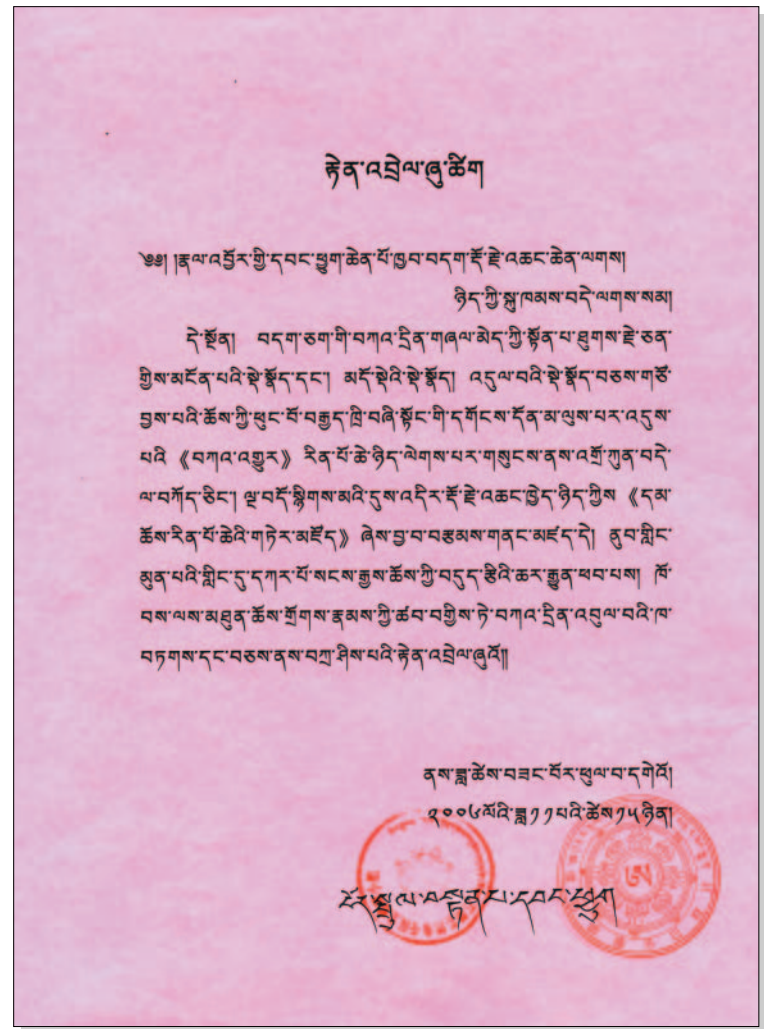 རྟེན་འབྲེལ་ཞུ་ཚིག
༄༅། །རྣལ་འབྱོར་གྱི་དབང་ཕྱུག་ཆེན་པོ་ཁྱབ་བདག་རྡོ་རྗེ་འཆང་ཆེན་ལགས།
ཉིད་ཀྱི་སྐུ་ཁམས་བདེ་ལགས་སམ།
དེ་སྔོན། བདག་ཅག་གི་བཀའ་དྲིན་གཞལ་མེད་ཀྱི་སྟོན་པ་ཐུགས་རྗེ་ཅན་
གྱིས་མངོན་པའི་སྡེ་སྣོད་དང་། མདོ་སྡེའི་སྡེ་སྣོད། འདུལ་བའི་སྡེ་སྣོད་བཅས་གཙོ་
བྱས་པའི་ཆོས་ཀྱི་ཕུང་པོ་བརྒྱད་ཁྲི་བཞི་སྟོང་གི་དགོངས་དོན་མ་ལུས་པར་འདུས་
པའི 《བཀའ་འགྱུར》 རིན་པོ་ཆེ་ཉིད་ལེགས་པར་གསུངས་ནས་འགྲོ་ཀུན་བདེ་
ལ་བཀོད་ཅིང་། ལྔ་བདོ་སྙིགས་མའི་དུས་འདིར་རྡོ་རྗེ་འཆང་ཁྱེད་ཉིད་ཀྱིས 《དམ་
ཆོས་རིན་པོ་ཆེའི་གཏེར་མཛོད》 ཞེས་བྱ་བ་བརྩམས་གནང་མཛད་དེ། ནུབ་གླིང་
མུན་པའི་གླིང་དུ་དཀར་པོ་སངས་རྒྱས་ཆོས་ཀྱི་བདུད་རྩིའི་ཆར་རྒྱུན་ཕབ་པས། ཁོ་
བས་ལས་མཐུན་ཆོས་གྲོགས་རྣམས་ཀྱི་ཚབ་བགྱིས་ཏེ་བཀའ་དྲིན་འབུལ་བའི་ཁ་
བཏགས་དང་བཅས་ནས་བཀྲ་ཤིས་པའི་རྟེན་འབྲེལ་ཞུའོ།།
ནས་ཟླ་ཚེས་བཟང་པོར་ཕུལ་བ་དགེའོ།
༢༠༠༦ལོའི་ཟླ༡༡པའི་ཚེས༡༥ཉིན།
ངོར་སྤྲུལ་བསྟན་པ་དབང་ཕྱུག